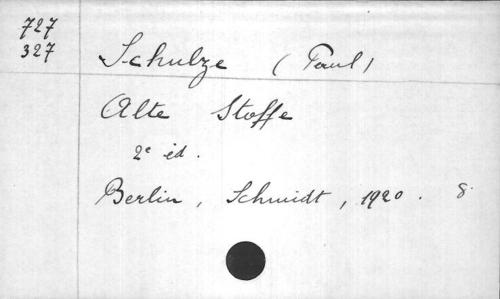 727
327
Schulze (Paul)
Alte Stoffe
2e éd.
Berlin, Schmidt, 1920. 8.